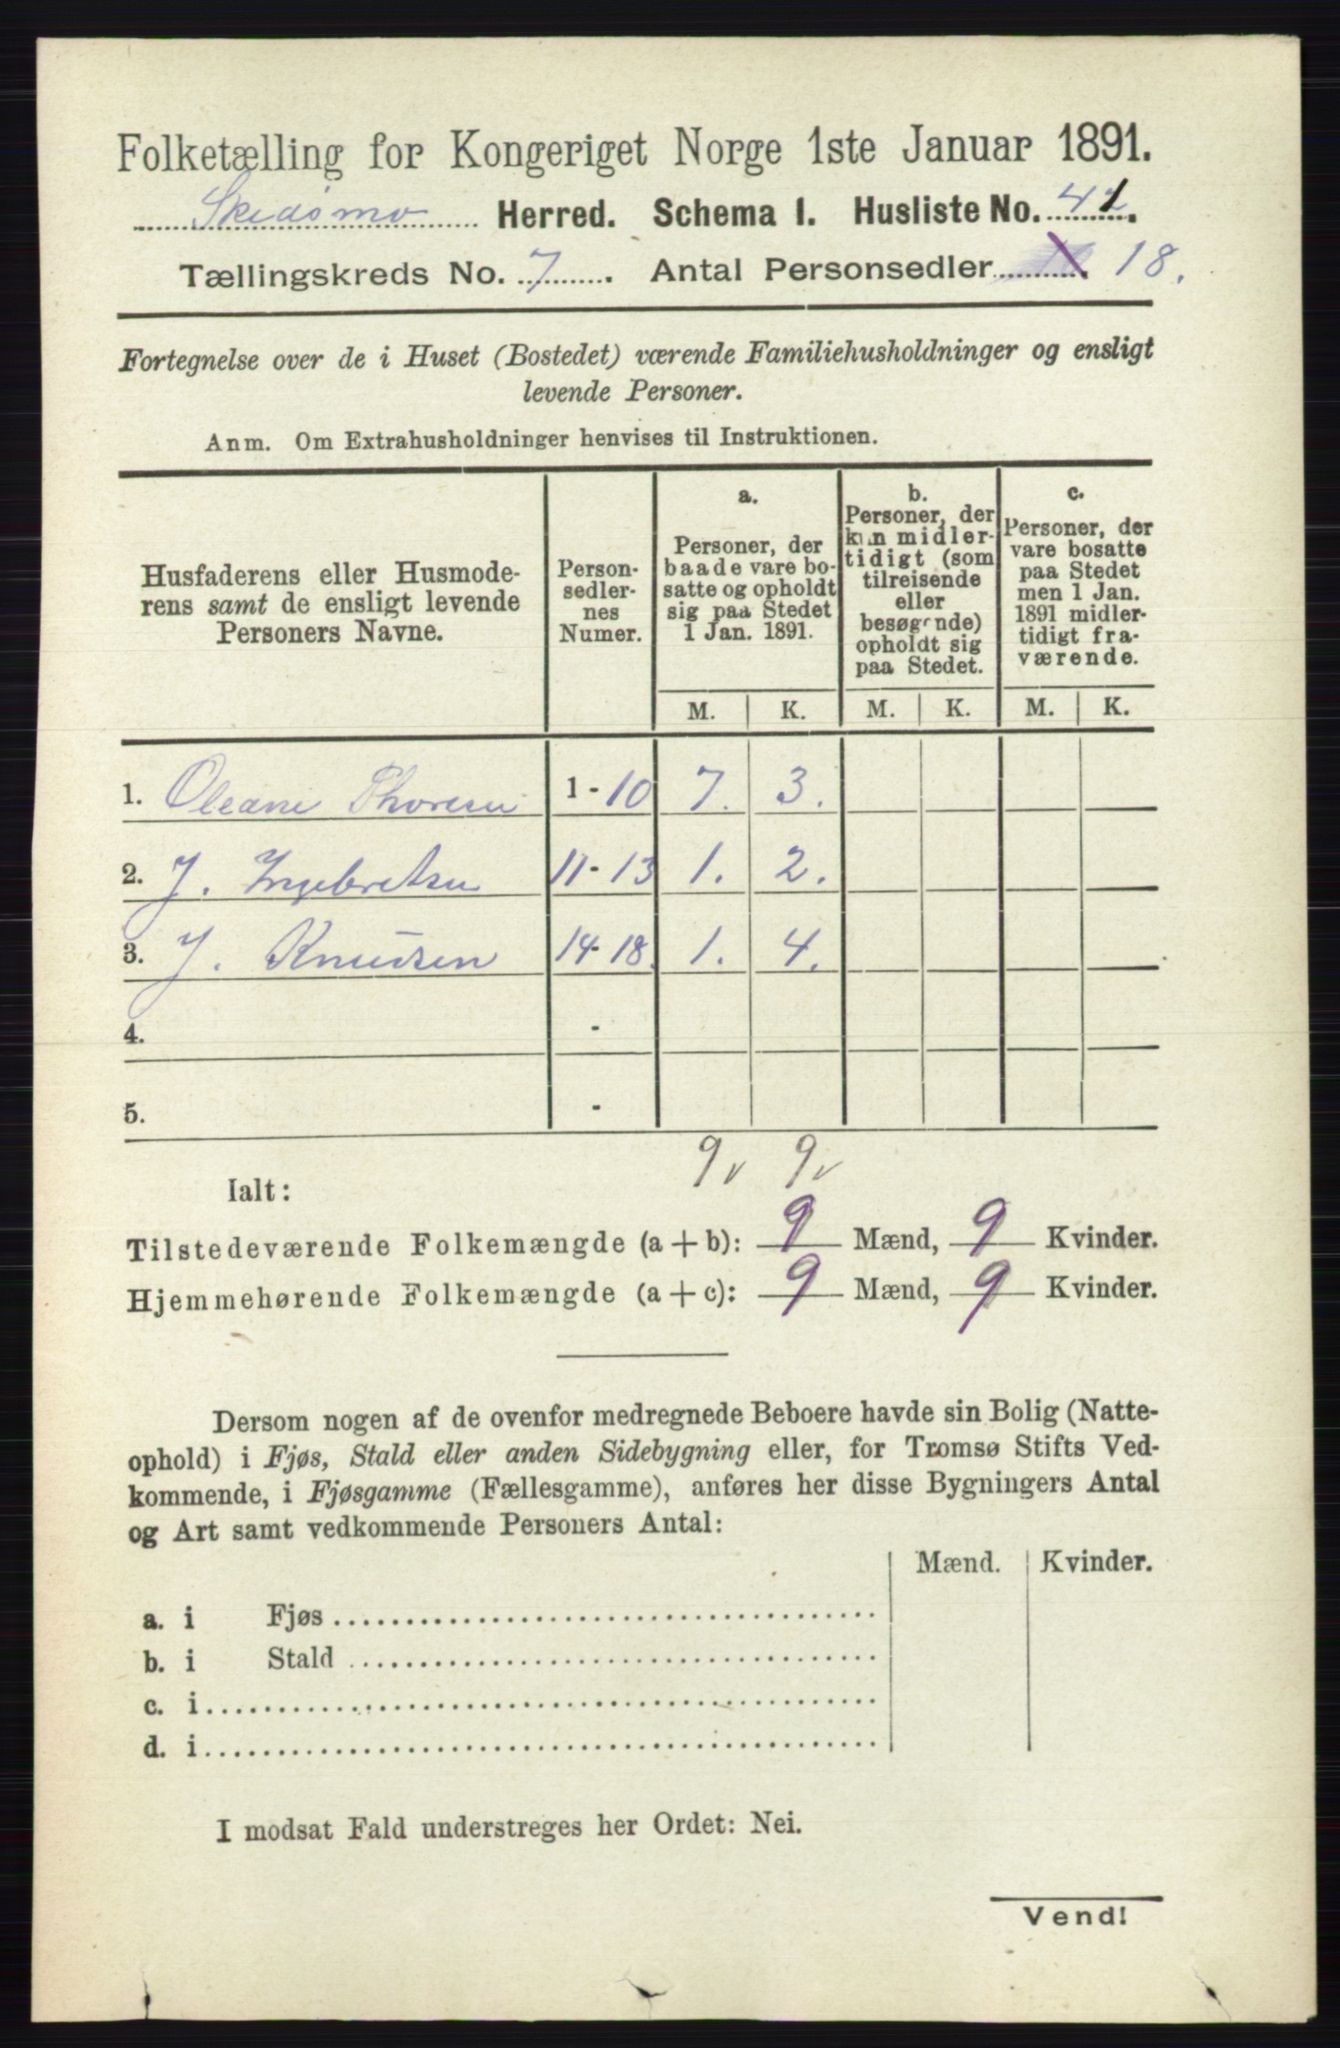 Folketælling for Kongeriget Norge 1ste Januar 1891.
Skedsmo Herred. Schema 1. Husliste No. 41.
Tællingskreds No. 7. Antal Personsedler 18.
Fortegnelse over de i Huset (Bostedet) værende Familiehusholdninger og ensligt
levende Personer.
Anm. Om Extrahusholdninger henvises til Instruktionen.
Husfaderens eller Husmode-
rens samt de ensligt levende
Personers Navne.
Person-
sedler-
nes
Numer.
a.
Personer, der
baade vare bo-
satte og opholdt
sig paa Stedet
1 Jan. 1891.
b.
Personer, der
kun midler-
tidigt (som
tilreisende
eller
besøgende)
opholdt sig
paa Stedet.
c.
Personer, der
vare bosatte
paa Stedet
men 1 Jan.
1891 midler-
tidigt fra-
værende.
M. K. M. K. M. K.
1. Oleane Thoresen 1-10 7. 3.
2. J. Ingebretsen 11-13 1. 2.
3. J. Knudsen 14-18. 1. 4.
4. -
5. -
9 9
Ialt:
Tilstedeværende Folkemængde (a + b): 9 Mænd, 9 Kvinder.
Hjemmehørende Folkemængde (a + c): 9 Mænd, 9 Kvinder.
Dersom nogen af de ovenfor medregnede Beboere havde sin Bolig (Natte-
ophold) i Fjøs, Stald eller anden Sidebygning eller, for Tromsø Stifts Ved-
kommende, i Fjøsgamme (Fællesgamme), anføres her disse Bygningers Antal
og Art samt vedkommende Personers Antal:
Mænd. Kvinder.
a. i Fjøs
b. i Stald
c. i
d. i
I modsat Fald understreges her Ordet: Nei.
Vend!